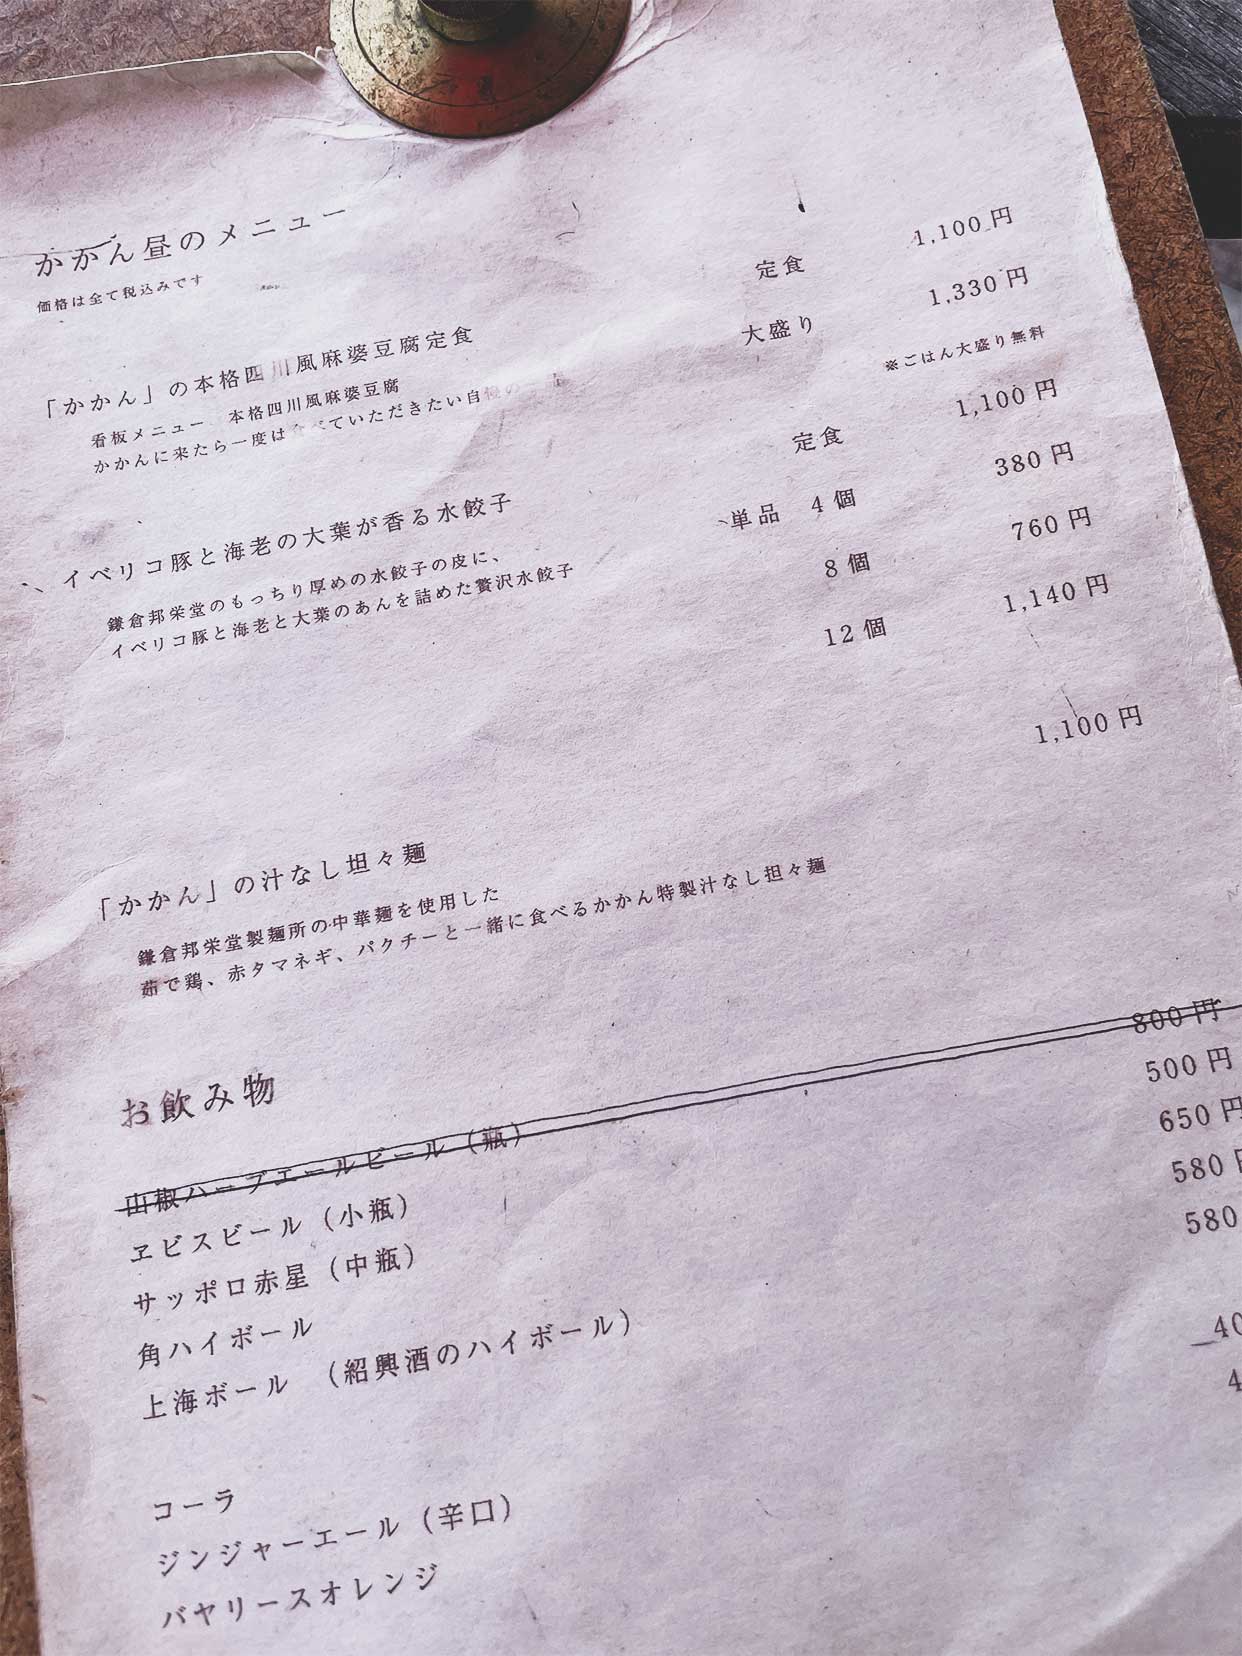 かかん昼のメニュー
価格は全て税込みです
「かかん」の本格四川風麻婆豆腐定食 定食 1,100 円
看板メニュー 本格四川風麻婆豆腐 大盛り 1,330 円
かかんに来たら一度は食べていただきたい自慢の
※ごはん大盛り無料
イベリコ豚と海老の大葉が香る水餃子 定食 1,100 円
鎌倉邦栄堂のもっちり厚めの水餃子の皮に、 単品 4 個 380 円
イベリコ豚と海老と大葉のあんを詰めた贅沢水餃子 8 個 760 円
12 個 1,140 円
「かかん」の汁なし坦々麺 1,100 円
鎌倉邦栄堂製麺所の中華麺を使用した
茹で鶏、赤タマネギ、パクチーと一緒に食べるかかん特製汁なし担々麺
お飲み物
山椒ハーブエールビール（瓶） 800 円
ヱビスビール（小瓶） 500 円
サッポロ赤星（中瓶） 650 円
角ハイボール 580 円
上海ボール （紹興酒のハイボール） 580
コーラ
ジンジャーエール（辛口）
バヤリースオレンジ